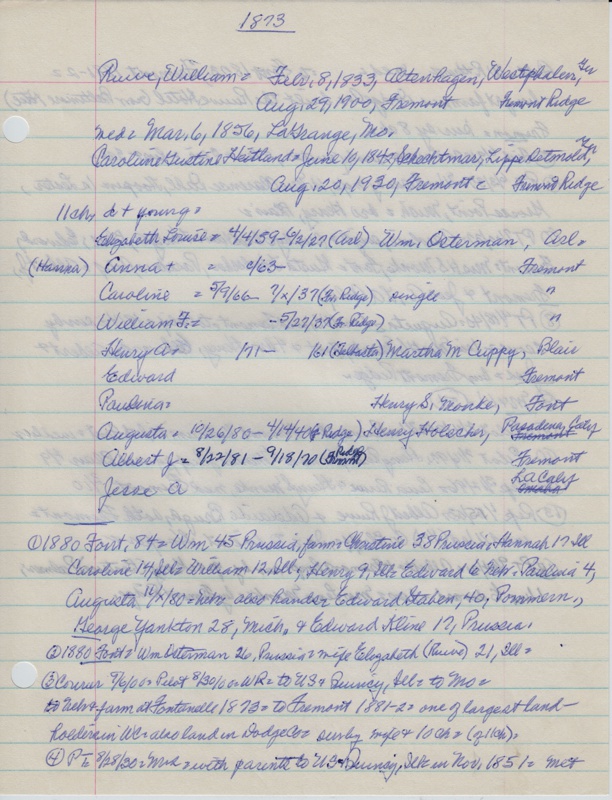 1873
Ruwe, William = Feb. 8, 1833, Altenhagen, Westphalen, Ger
Aug. 29, 1900, Fremont Fremont Ridge
med = Mar. 6, 1856, LaGrange, Mo.
Caroline Justine Heitland = June 10, 1842, Schoetmar, Lippe Detmold,
Aug. 20, 1930, Fremont = Fremont Ridge
11 chs & + young =
Elizabeth Louise = 4/4/59-4/2/27 (Arl) Wm. Osterman, Arl =
(Hanna) Anna + = 0/63- Fremont
Caroline = 5/9/66- 7/x/37 (Fr. Ridge) single "
William F. = -5/27/37 (Fr. Ridge) "
Henry A = /71- /61 Martha M Cuppy, Blair
Edward Fremont
Paulina = Henry S. Monke, Font
Augusta = 10/26/80-4/14/40 (Fr Ridge) Henry Holscher, Pasadena, Calif
Fremont
Albert J = 8/22/81-9/18/20 (Ridge Fremont) Fremont
Jesse A LA Calif
Omaha
① 1880 Font. 84 = Wm 45 Prussia, farm = Christine 38 Prussia = Hannah 17 Ill
Caroline 14, Ill = William 12, Ill, Henry 9, Ill = Edward 6 Neb = Paulina 4,
Augusta /80 = Neb = also hands = Edward Staben, 40, Pommern.,
George Yankton 28, Mich. & Edward Kline 17, Prussia.
② 1880 Font = Wm Osterman 26, Prussia = wife Elizabeth (Ruwe) 21, Ill =
③ Courier 9/6/00 = Pilot 8/30/00 = WR = to US & Quincy, Ill = to Mo =
to Neb & farm at Fontanelle 1873 = to Fremont 1881-2 = one of largest land-
holders in WC = also land in Dodge Co = sur by wife & 10 ch = (of 11 ch).
④ 8/28/30 = = with parents to US Quincy, Ill = in Nov. 1851 = met